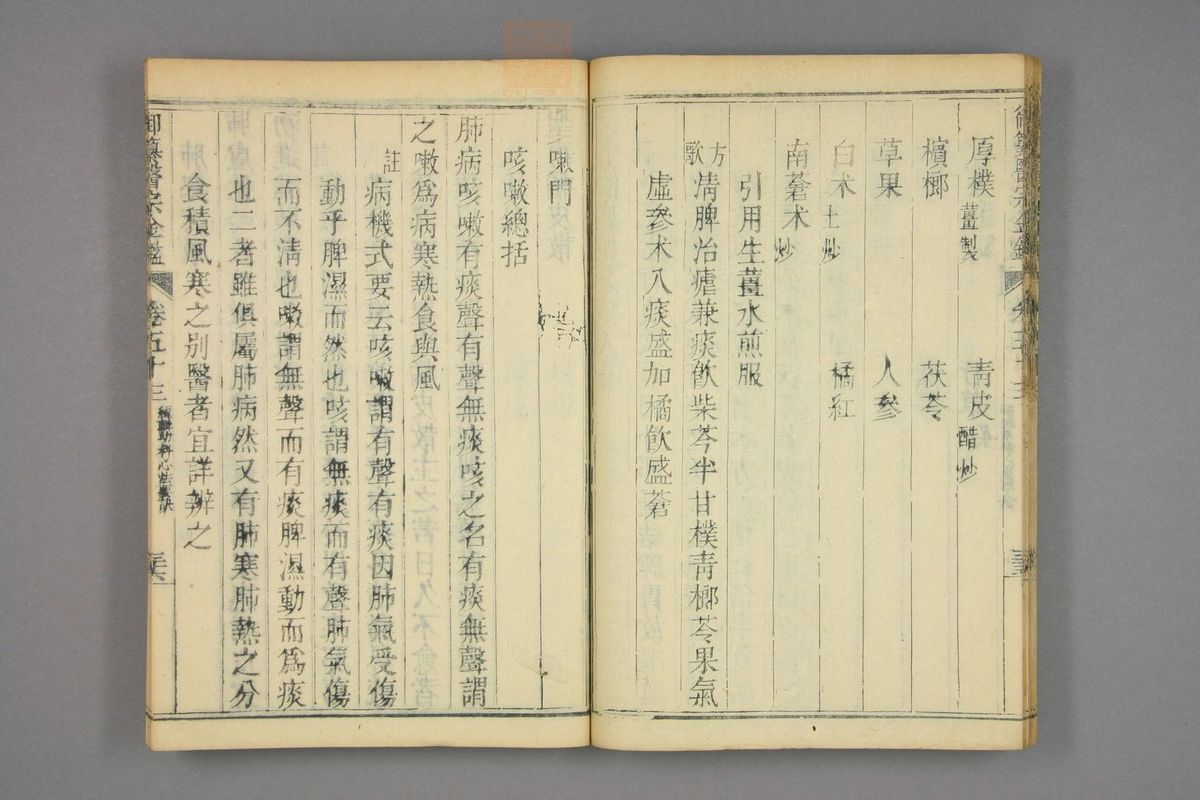 厚樸薑製 靑皮醋炒
檳榔 茯苓
草果 人參
白术土炒 橘紅
南蒼术炒
引用生薑水煎服
方歌 淸脾治瘧兼痰飮柴芩半甘樸靑榔苓果氣
虛參术入痰盛加橘飮盛蒼
嗽門
咳嗽總括
肺病咳嗽有痰聲有聲無痰咳之名有痰無聲謂
之嗽爲病寒熱食與風
註 病機式要云咳嗽謂有聲有痰因肺氣受傷
動乎脾濕而然也咳謂無痰而有聲肺氣傷
而不淸也嗽謂無聲而有痰脾濕動而爲痰
也二者雖俱屬肺病然又有肺寒肺熱之分
食積風寒之别醫者宜詳辨之
御纂醫宗金鑑 卷五十三 編輯幼科心法要訣